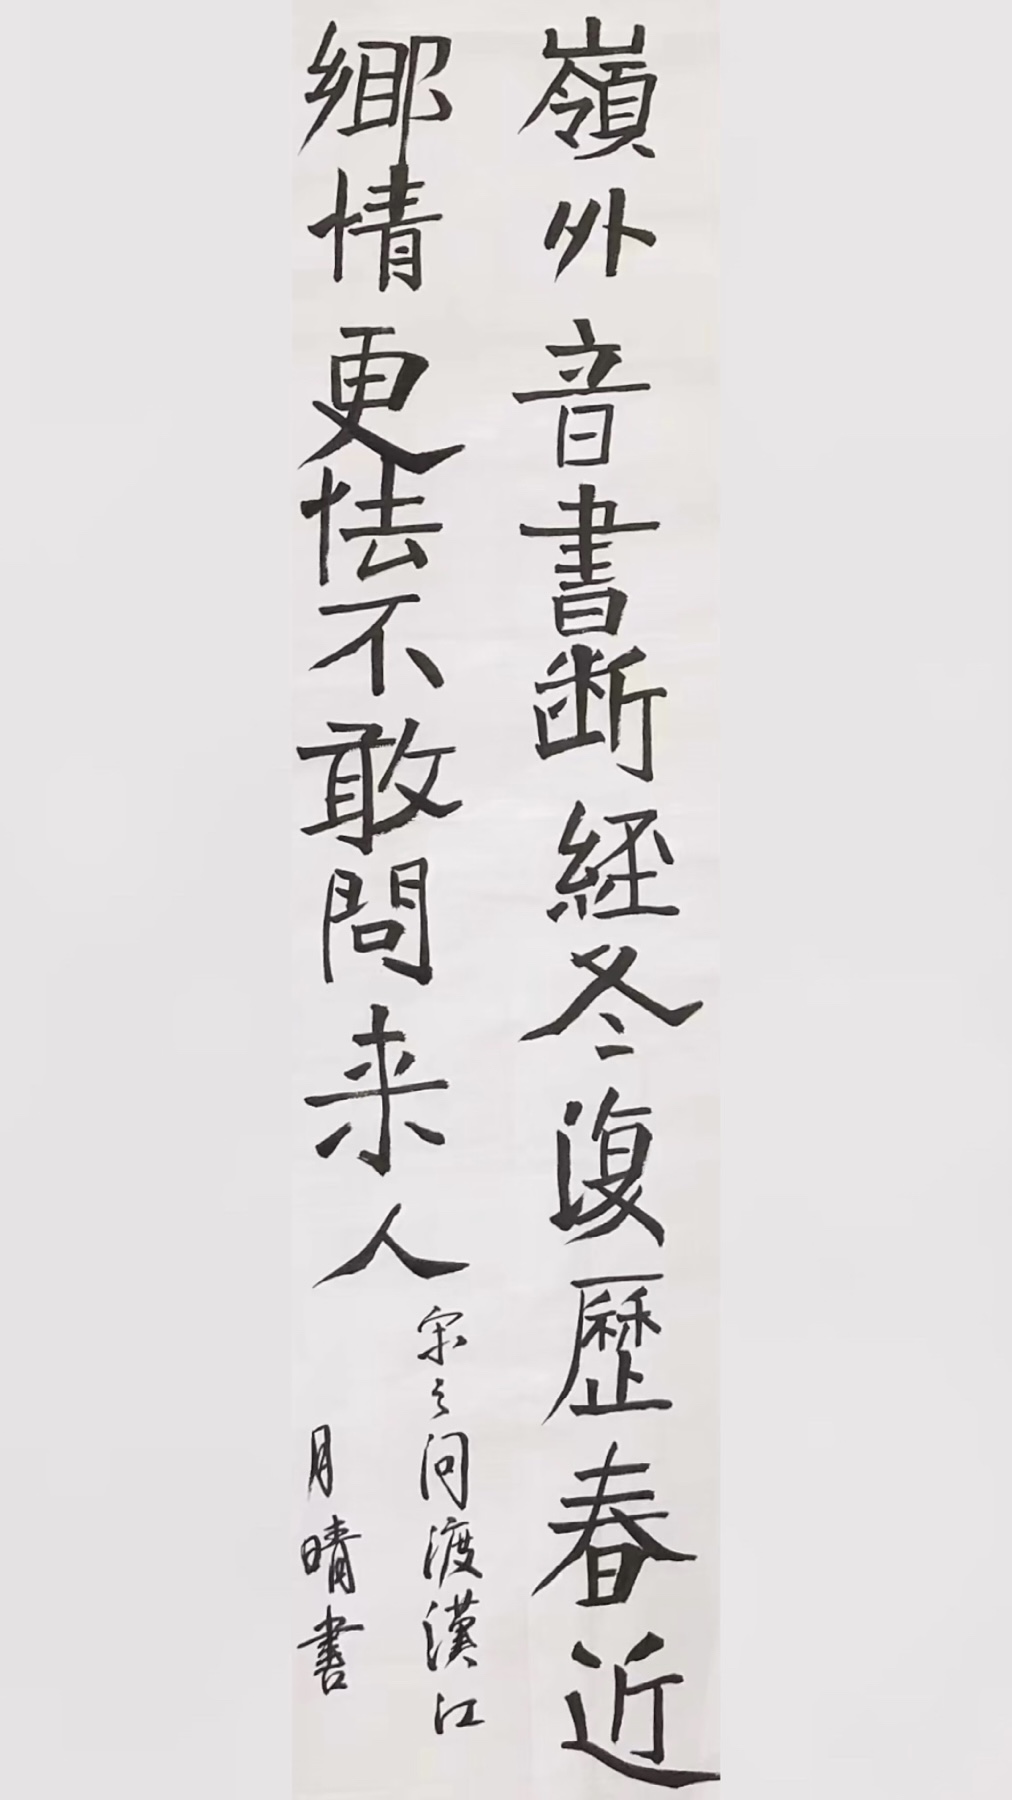 嶺外音書断経冬復歷春近
鄉情更怯不敢問来人
宋之问渡漢江
月晴書